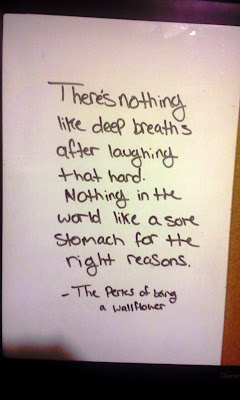 There's nothing
like deep breaths
after laughing
that hard.
Nothing in the
world like a sore
stomach for the
right reasons.
- The Perks of being
a wallflower